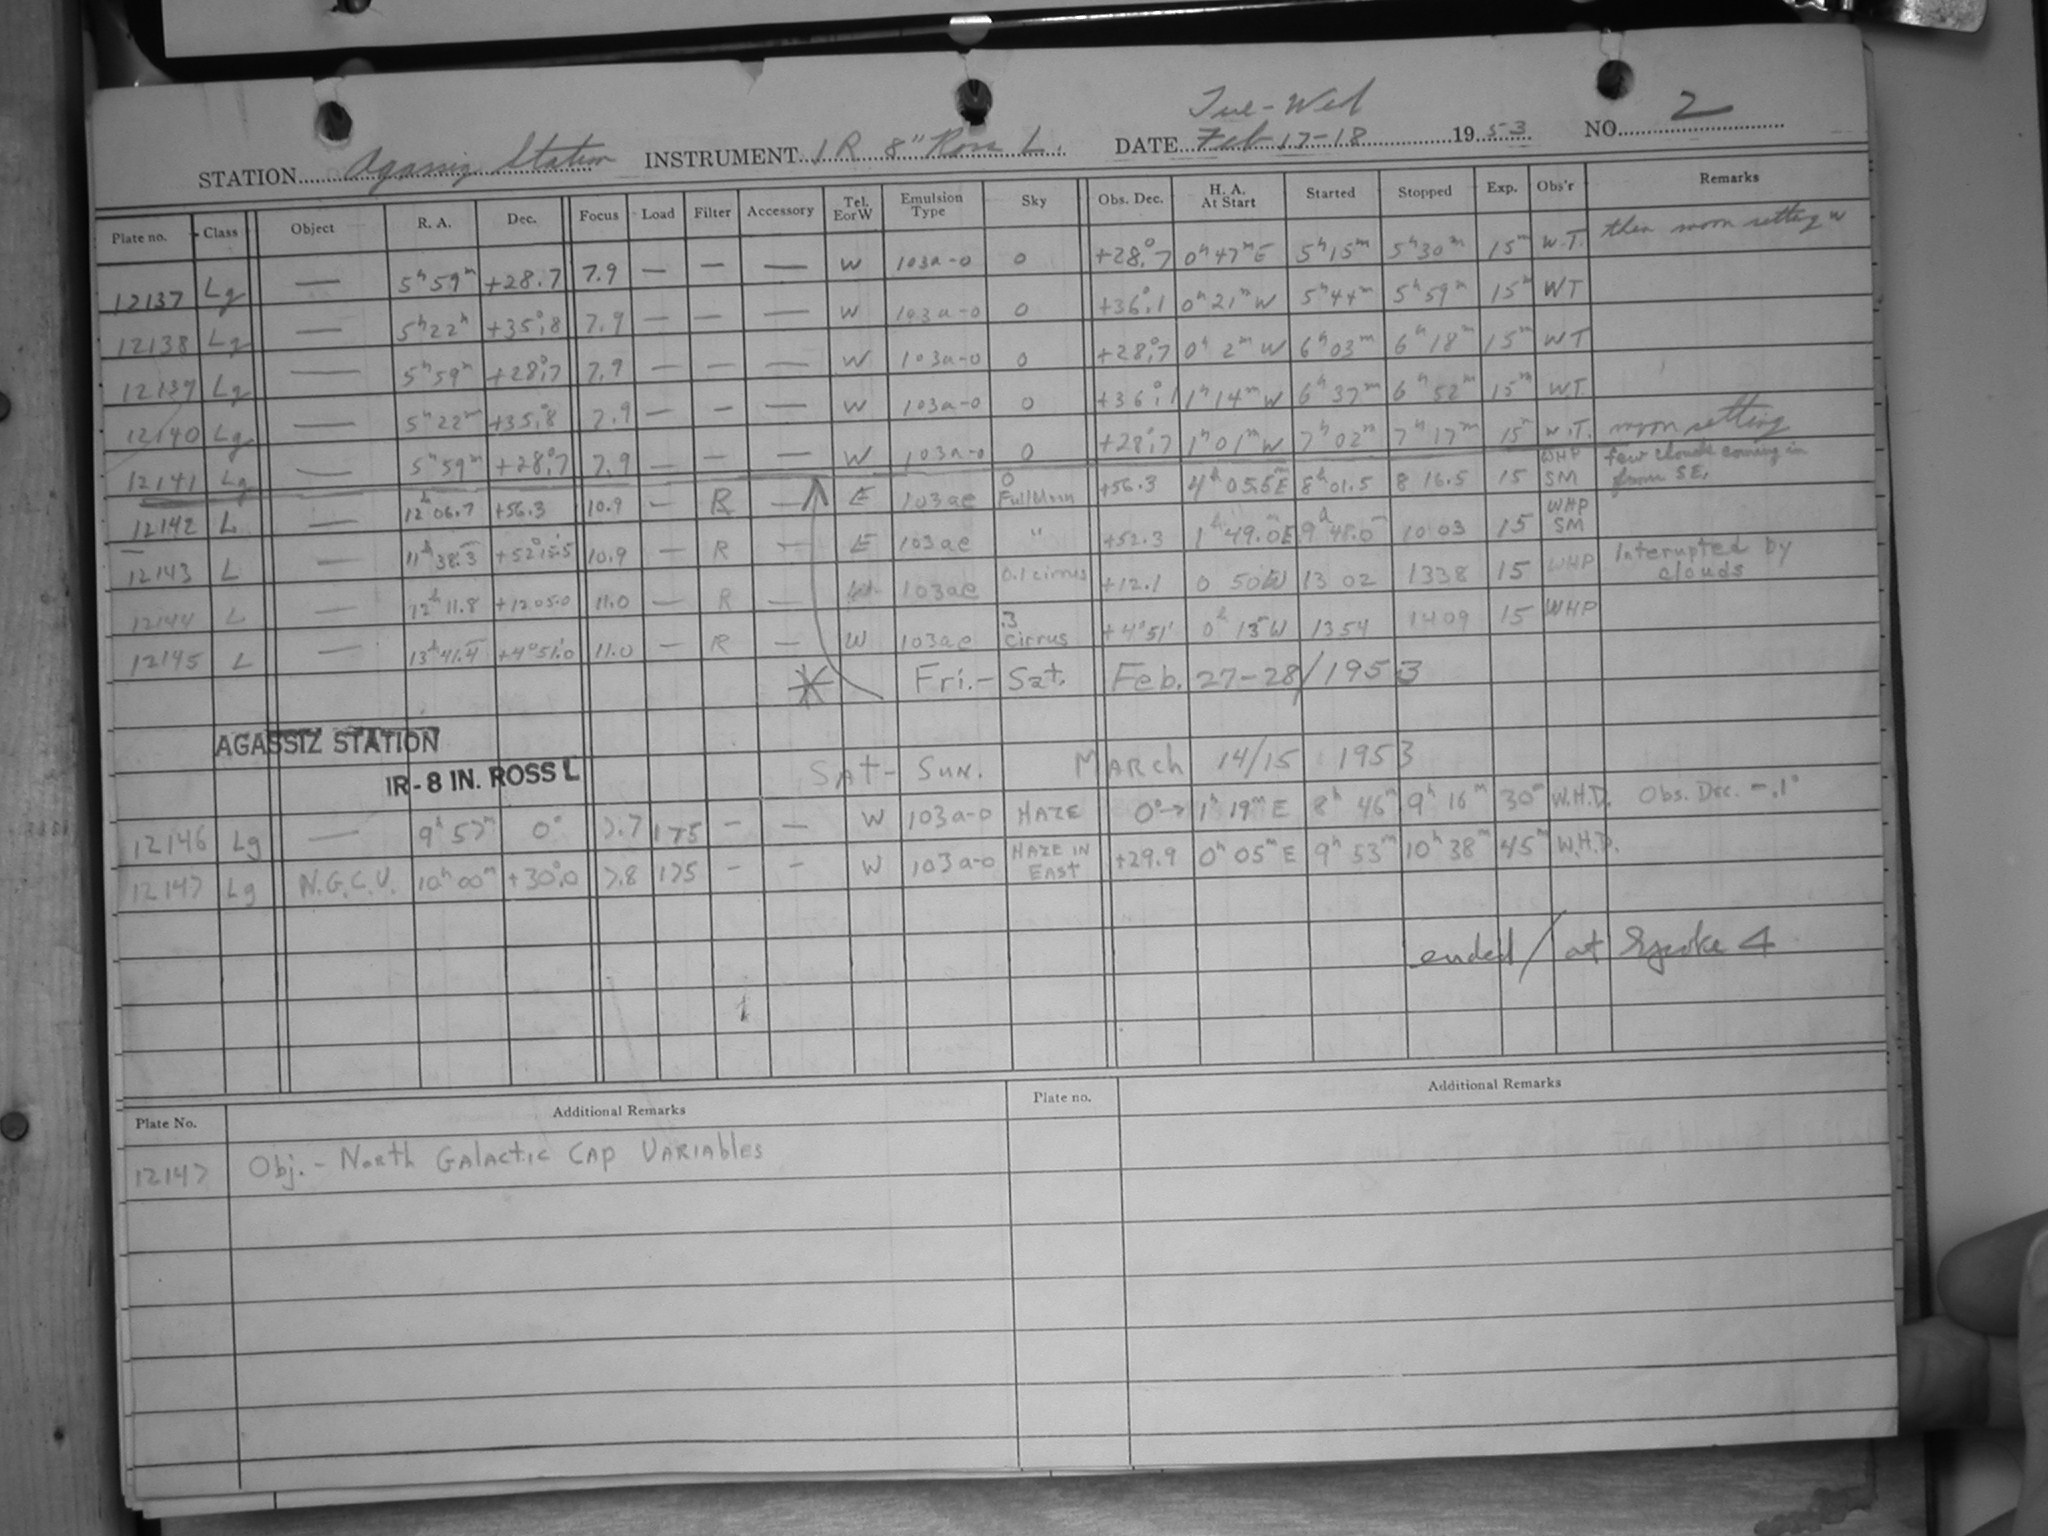 Tue-Wed
STATION Agassiz Station INSTRUMENT IR 8" Ross L. DATE Feb 17-18 1953 NO. 2
Plate no. Class Object R. A. Dec. Focus Load Filter Accessory Tel. E or W Emulsion Type Sky Obs. Dec. H. A. At Start Started Stopped Exp. Obs'r Remarks
12137 Lg — 5h 59m +28.7 7.9 — — — W 103a-0 0 +28°.7 0h 47m E 5h 15m 5h 30m 15m W.T. then moon setting W
12138 Lg — 5h 22m +35°.8 7.9 — — — W 103a-0 0 +36°.1 0h 21m W 5h 44m 5h 59m 15m WT
12139 Lg — 5h 59m +28°.7 7.9 — — — W 103a-0 0 +28°.7 0h 2m W 6h 03m 6h 18m 15m WT
12140 Lg — 5h 22m +35°.8 7.9 — — — W 103a-0 0 +36°.1 1h 14m W 6h 37m 6h 52m 15m WT.
12141 Lg — 5h 59m +28°.7 7.9 — — — W 103a-0 0 +28°.7 1h 01m W 7h 02m 7h 17m 15m W.T. moon setting
12142 L — 12h 06.7 +56.3 10.9 — R — E 103ae 0 Full Moon +56.3 4h 05.5m E 8h 01.5 8 16.5 15 WHP SM few clouds coming in from SE.
12143 L — 11h 38.3m +52° 15.5 10.9 — R — E 103ae " +52.3 1h 49.0m E 9h 48.0m 10 03 15 WHP SM
12144 L — 12h 11.8 +12 05.0 11.0 — R — 103ae 0.1 cirrus +12.1 0 50 W 13 02 1338 15 WHP Interupted by clouds
12145 L — 13h 41.4m +4° 51.0' 11.0 — R — W 103ae .3 cirrus +4° 51' 0h 13m W 1354 1409 15 WHP
* Fri. - Sat. Feb. 27-28/1953
AGASSIZ STATION
IR - 8 IN. ROSS L
SAt - SUN. MARCh 14/15 1953
12146 Lg — 9h 57m 0° 7.7 175 — — W 103a-0 HAZE 0° → 1h 19m E 8h 46m 9h 16m 30m W.H.D. Obs. Dec. -.1°
12147 Lg N.G.C.V. 10h 00m +30°.0 7.8 175 - - W 103a-0 HAZE IN EAST +29.9 0h 05m E 9h 53m 10h 38m 45m W.H.D.
ended / at 4
Plate No. Additional Remarks Plate no. Additional Remarks
12147 Obj. - NORth GALActIC CAP VARIAbLES